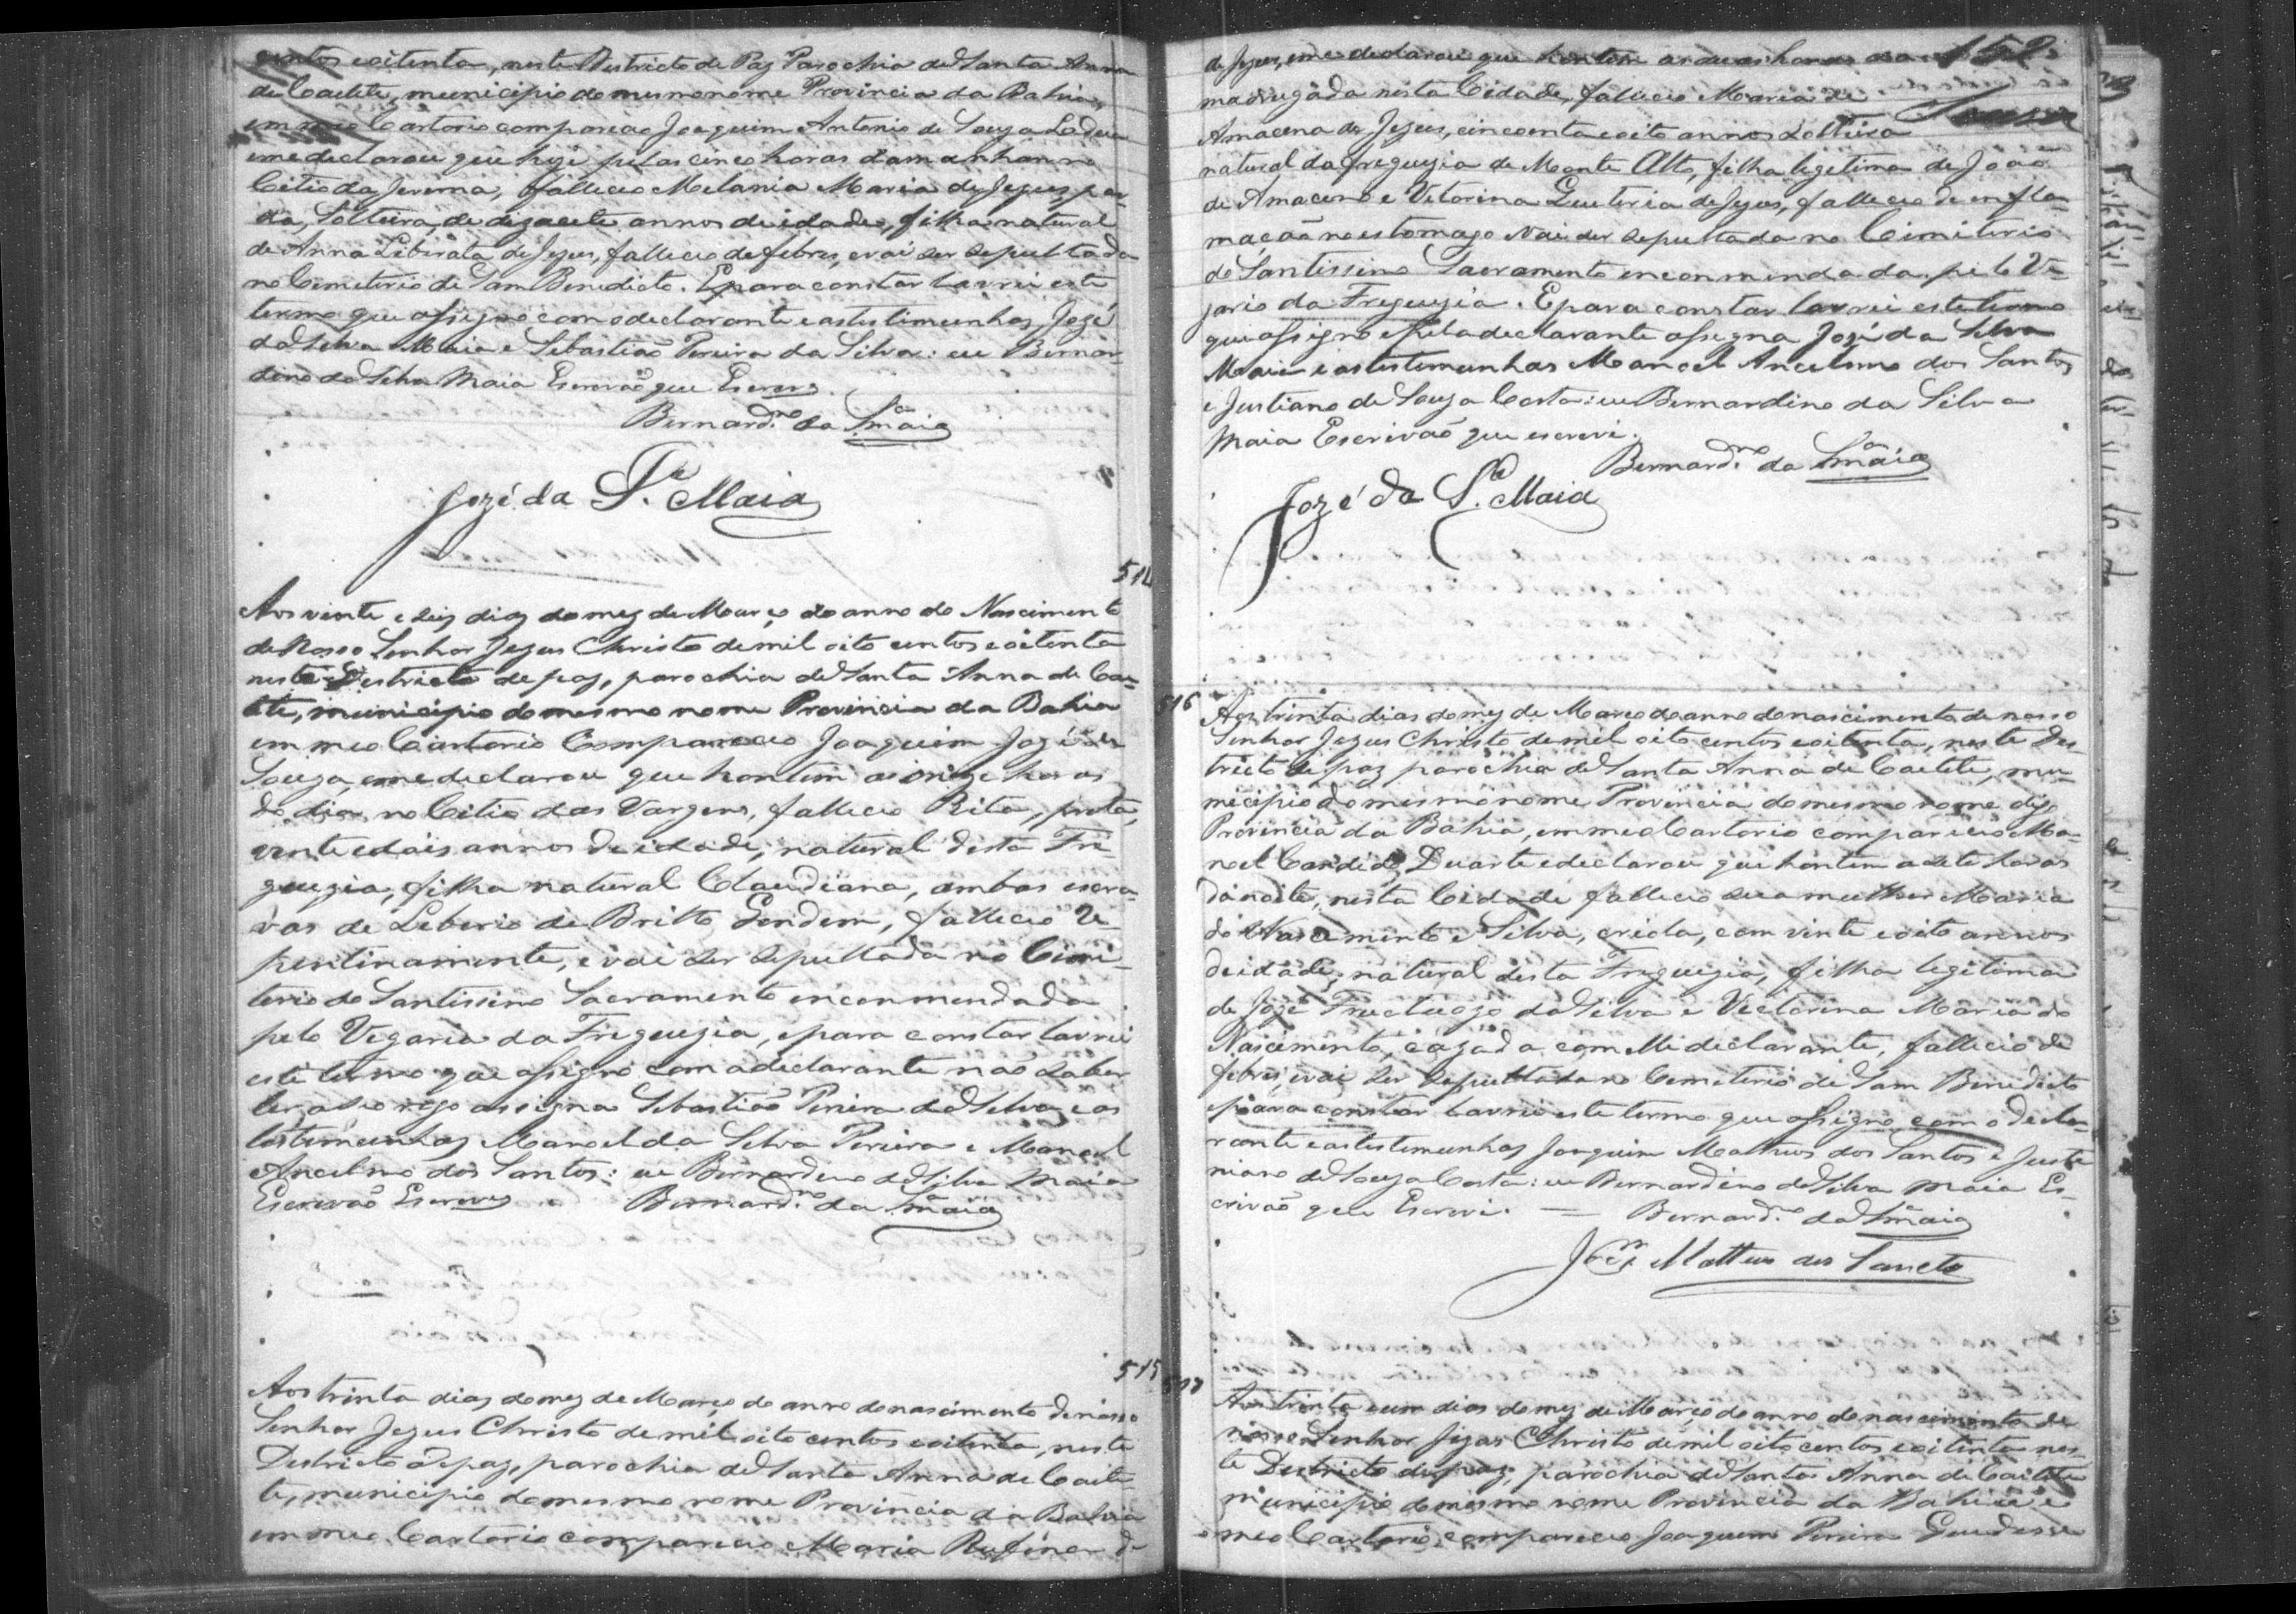 centos e oitenta, neste Destricto de Paz Parochia de Santa Anna
de Caetete, municipio do mesmo nome Provincia da Bahia,
em meo Cartorio compareceo Joaquim Antonio de Souza
e me declarou que hoje pelas cinco horas da manhan no
Citio da Jerema, falleceo Melania Maria de Jezus, par-
da, Solteira, de dezasete annos de idade, filha natural
de Anna Liberata de Jezus, falleceo de febres, e vai ser sepultada
no Cemeterio de Sam Benedicto. E para constar lavrei este
termo que assigno com o declarante e as testimunhas Jozé
da Silva Maia e Sebastião Pereira da Silva: eu Bernar-
dino da Silva Maia Escrivão que Escrevy.
Bernard.no da S.a Maia
Jozé da S.a Maia
514
Aos vinte e seis dias do mez de Março do anno do Nascimento
de Nosso Senhor Jezus Christo de mil oito centos e oitenta
neste Destricto de paz, parochia de Santa Anna de Cae-
tete, municipio do mesmo nome Provincia da Bahia
em meo Cartorio Compareceo Joaquim Jozé de
Souza, e me declarou que hontem as onze horas
do dia, no Citio das Vargens, falleceo Rita, preta,
vinte e dois annos de idade, natural desta Fre-
guezia, filha natural Claudiana, ambas escra-
vas de Leberio de Britto Gondem, falleceo re-
pentinamente, e vai ser sepultada no Cimi-
terio do Santissimo Sacramento enconmendada
pelo Vegario da Freguezia, e para constar lavrei
este termo que assigno com o declarante não saber
ler a seo rogo assigna Sebastião Pereira da Silva e as
testimunhas Manoel da Silva Pereira e Manoel
Ancelmo dos Santos: eu Bernardino da Silva Maia
Escrivão Escrevy Bernard.no da S.a Maia
515
Aos trinta dias do mez de Março do anno do nascimento de nosso
Senhor Jezus Christo de mil oito centos e oitenta, neste
Destricto de paz, parochia de Santa Anna de Caite-
te, municipio do mesmo nome Provincia da Bahia
em meo Cartorio compareceo Maria Rufina de
152
Souza
de Jezus, e me declarou que hontem as duas horas da
madrugada nesta Cidade, falleceo Maria de
Amacena de Jezus, cincoenta e oito annos Solteira
natural da freguezia de Monte Alto, filha legitima de João
de Amaceno e Vetorina Leuteria de Jezus, falleceo de enfla-
mação no estomago vai ser sepultada no Cimiterio
do Santissimo Sacramento enconmendada pelo Ve-
gario da Freguezia. E para constar lavrei este termo
que assigno e pela declarante assigna Jozé da Silva
Maia e as testemunhas Manoel Ancelmo dos Santos
e Justiano de Souza Costa: eu Bernardino da Silva
Maia Escrivão que escrevi.
Bernard.no da S.a Maia
Jozé da S.a Maia
516
Aos trinta dias do mez de Março do anno do nascimento de nosso
Senhor Jezus Christo de mil oito centos e oitenta, neste Des-
tricto de paz parochia de Santa Anna de Caetete, mu-
nicipio do mesmo nome Provincia do mesmo nome digo
Provincia da Bahia, em meo Cartorio compareceo Ma-
noel Candido Duarte e declarou que hontem a sete horas
da noite, nesta Cidade falleceo sua mulher Maria
do Nascimento e Silva, criola, com vinte e oito annos
de idade, natural desta Freguezia, filha legitima
de Jozé Fructuozo da Silva e Vectorina Maria do
Nascimento, cazada com Me declarante, falleceo de
febres, e vai ser sepultada no Cemeterio de Sam Benedicto
e para constar lavrei este termo que assigno com o decla-
rante e as testemunhas Joaquim Matheos dos Santos e Justi-
niano de Souza Costa: eu Bernardino da Silva Maia Es-
crivão que Escrevi. Bernard.no da S.a Maia
Joaq.m Mattheus dos Sanctos
517
Aos trinta e um dias do mez de Março do anno do nascimento de
nosso Senhor Jezus Christo de mil oito centos e oitenta nes-
te Destricto de paz, parochia de Santa Anna de Caetete
municipio do mesmo nome Provincia da Bahia e
meo Cartorio compareceo Joaquim Pereira